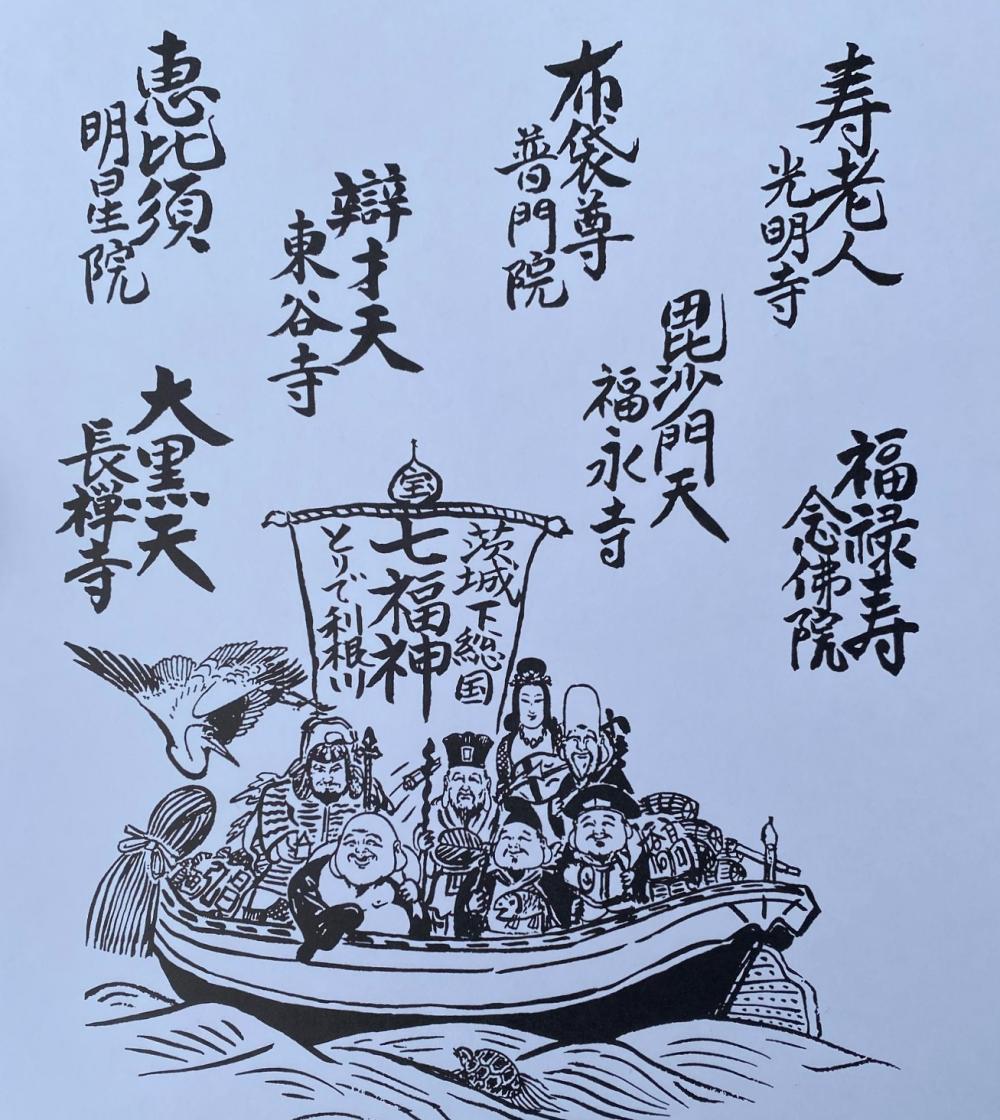 寿老人
光明寺
福禄寿
念佛院
毘沙門天
福永寺
布袋尊
普門院
辯才天
東谷寺
恵比須
明星院
大黒天
長禅寺
宝
茨城下総国
七福神
とりで利根川